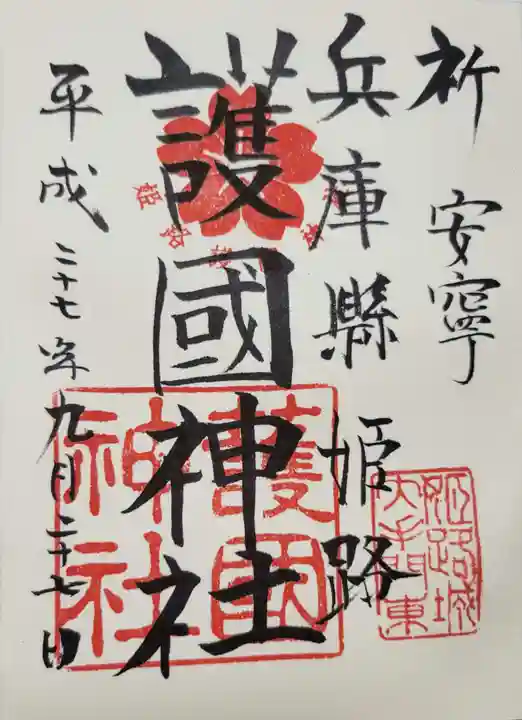 祈 安寧
兵庫縣姫路
護國神社
平成二十七年九月二十七日
護國
神社
姫路城
大手門東